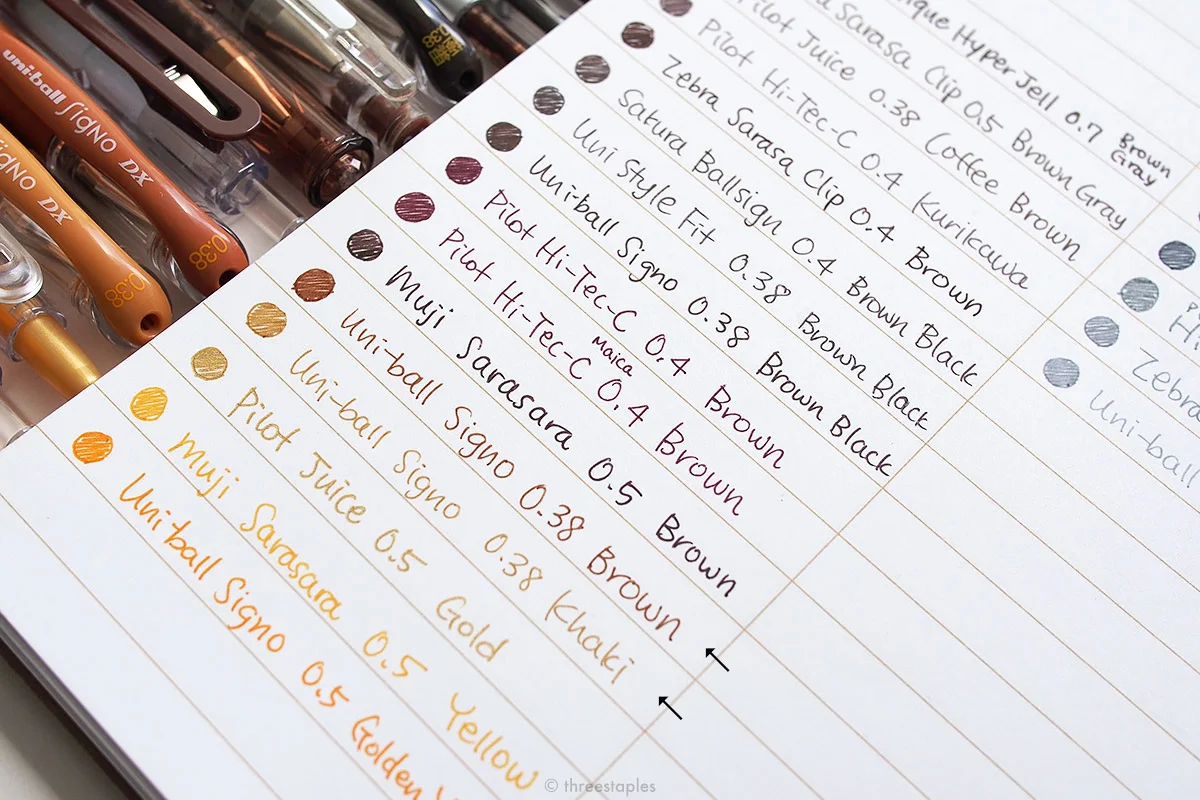 uni-ball SigNo DX
0.38
SigNo DX
0.38
0.38
Hyper Jell 0.7 Brown Gray
Sarasa Clip 0.5 Brown Gray
Pilot Juice 0.38 Coffee Brown
Pilot Hi-Tec-C 0.4 Kurikawa
Zebra Sarasa Clip 0.4 Brown
Satura Ballsign 0.4 Brown Black
Uni Style Fit 0.38 Brown Black
Uni-ball Signo 0.38 Brown Black
Pilot Hi-Tec-C 0.4 Brown
Pilot Hi-Tec-C Maica 0.4 Brown
Muji Sarasara 0.5 Brown
Uni-ball Signo 0.38 Brown
Uni-ball Signo 0.38 Khaki
Pilot Juice 0.5 Gold
Muji Sarasara 0.5 Yellow
Uni-ball Signo 0.5 Golden
Zebra
Uni-ball
© threestaples